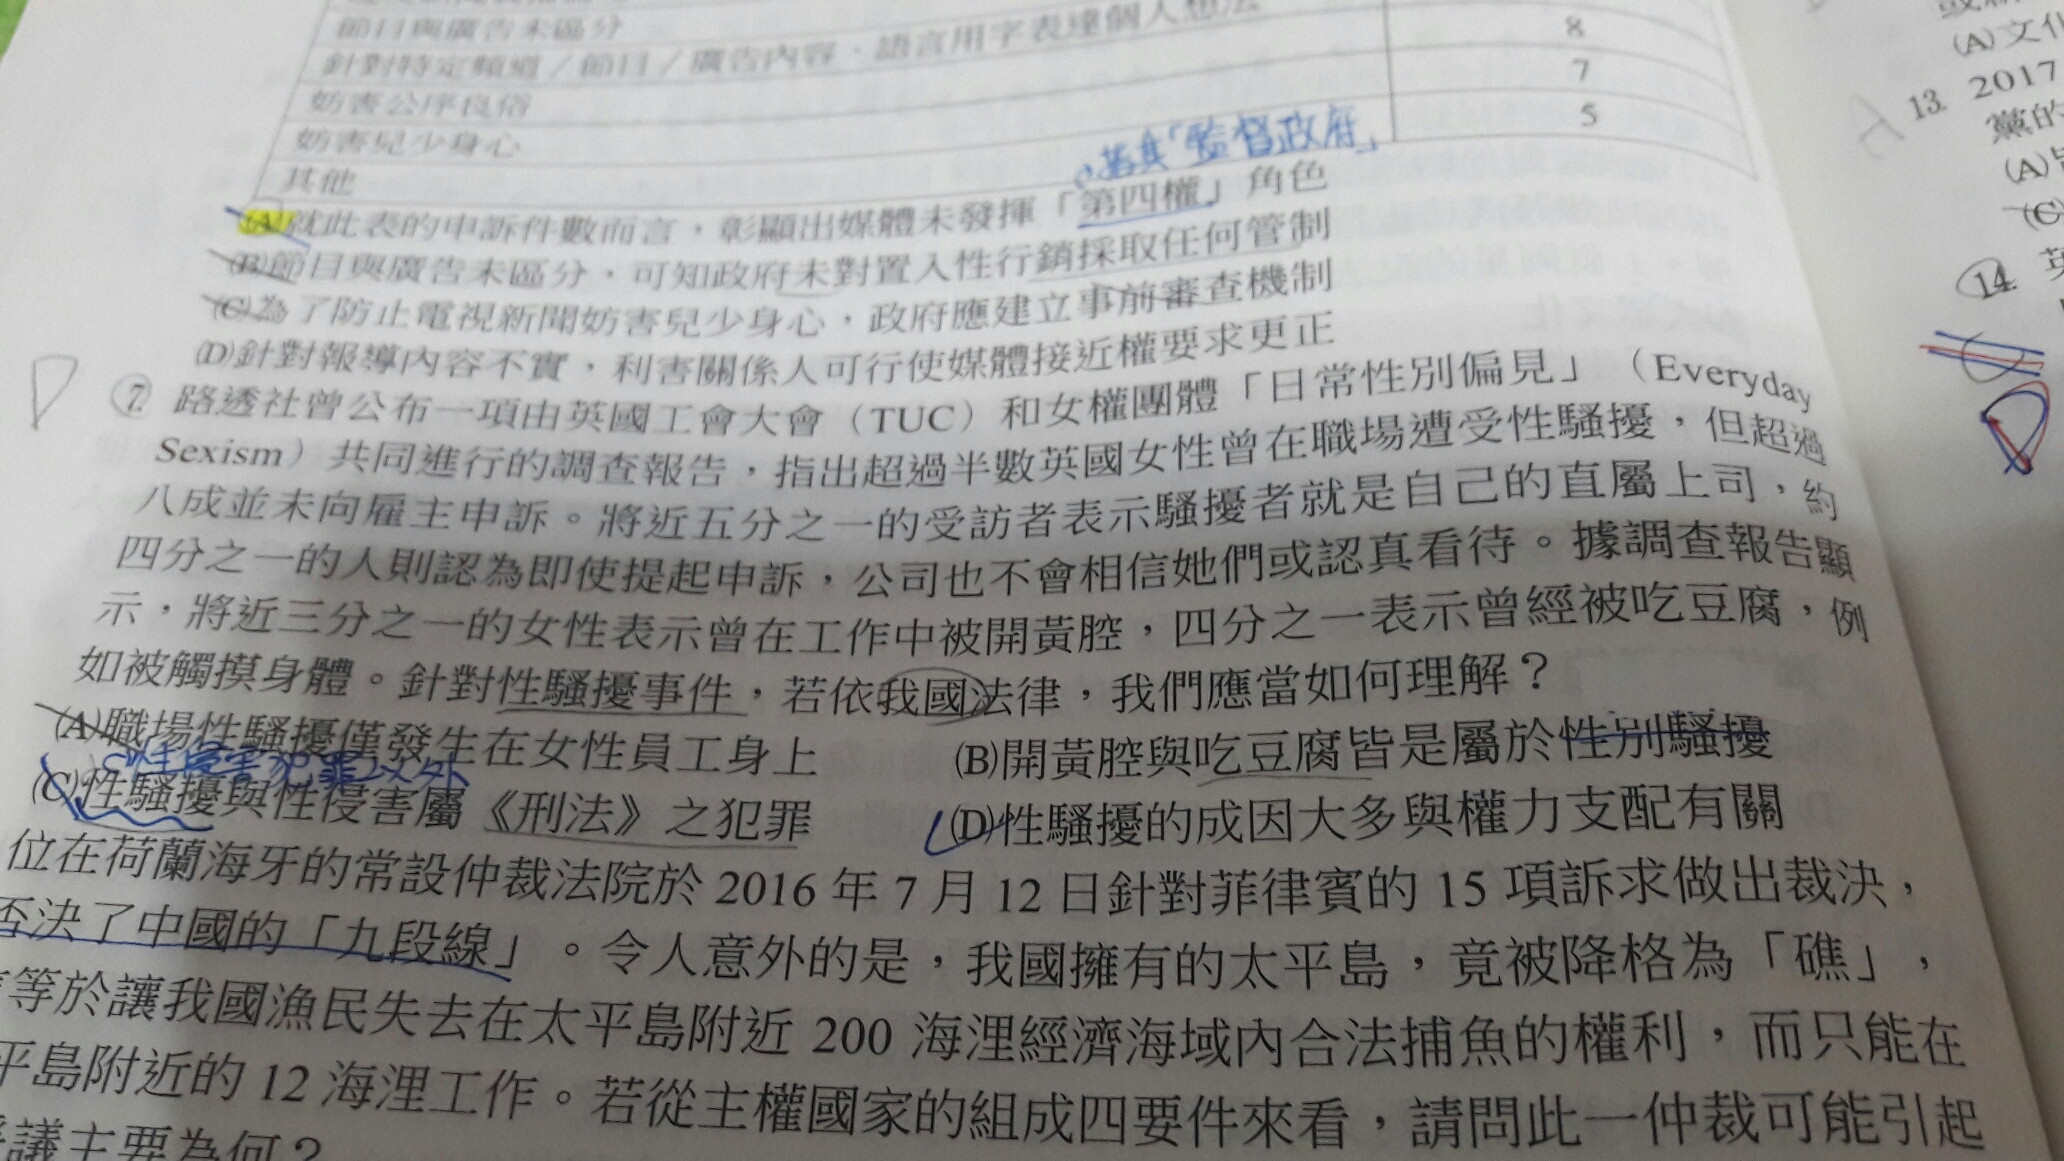 節目與廣告未區分
針對特定頻道/節目/廣告內容、語言用字表達個人想法
8
妨害公序良俗
7
妨害兒少身心
5
其他
指其「監督政府」
(A)就此表的申訴件數而言，彰顯出媒體未發揮「第四權」角色
(B)節目與廣告未區分，可知政府未對置入性行銷採取任何管制
(C)為了防止電視新聞妨害兒少身心，政府應建立事前審查機制
(D)針對報導內容不實，利害關係人可行使媒體接近權要求更正
D
7. 路透社曾公布一項由英國工會大會（TUC）和女權團體「日常性別偏見」（Everyday
Sexism）共同進行的調查報告，指出超過半數英國女性曾在職場遭受性騷擾，但超過
八成並未向雇主申訴。將近五分之一的受訪者表示騷擾者就是自己的直屬上司，約
四分之一的人則認為即使提起申訴，公司也不會相信她們或認真看待。據調查報告顯
示，將近三分之一的女性表示曾在工作中被開黃腔，四分之一表示曾經被吃豆腐，例
如被觸摸身體。針對性騷擾事件，若依我國法律，我們應當如何理解？
(A)職場性騷擾僅發生在女性員工身上
(B)開黃腔與吃豆腐皆是屬於性別騷擾
性侵害犯罪以外
(C)性騷擾與性侵害屬《刑法》之犯罪
(D)性騷擾的成因大多與權力支配有關
位在荷蘭海牙的常設仲裁法院於 2016 年 7 月 12 日針對菲律賓的 15 項訴求做出裁決，
否決了中國的「九段線」。令人意外的是，我國擁有的太平島，竟被降格為「礁」，
等於讓我國漁民失去在太平島附近 200 海浬經濟海域內合法捕魚的權利，而只能在
平島附近的 12 海浬工作。若從主權國家的組成四要件來看，請問此一仲裁可能引起
議主要為何？
(A)文化
13. 2017
黨的
(A)
(C)
14. 英
D